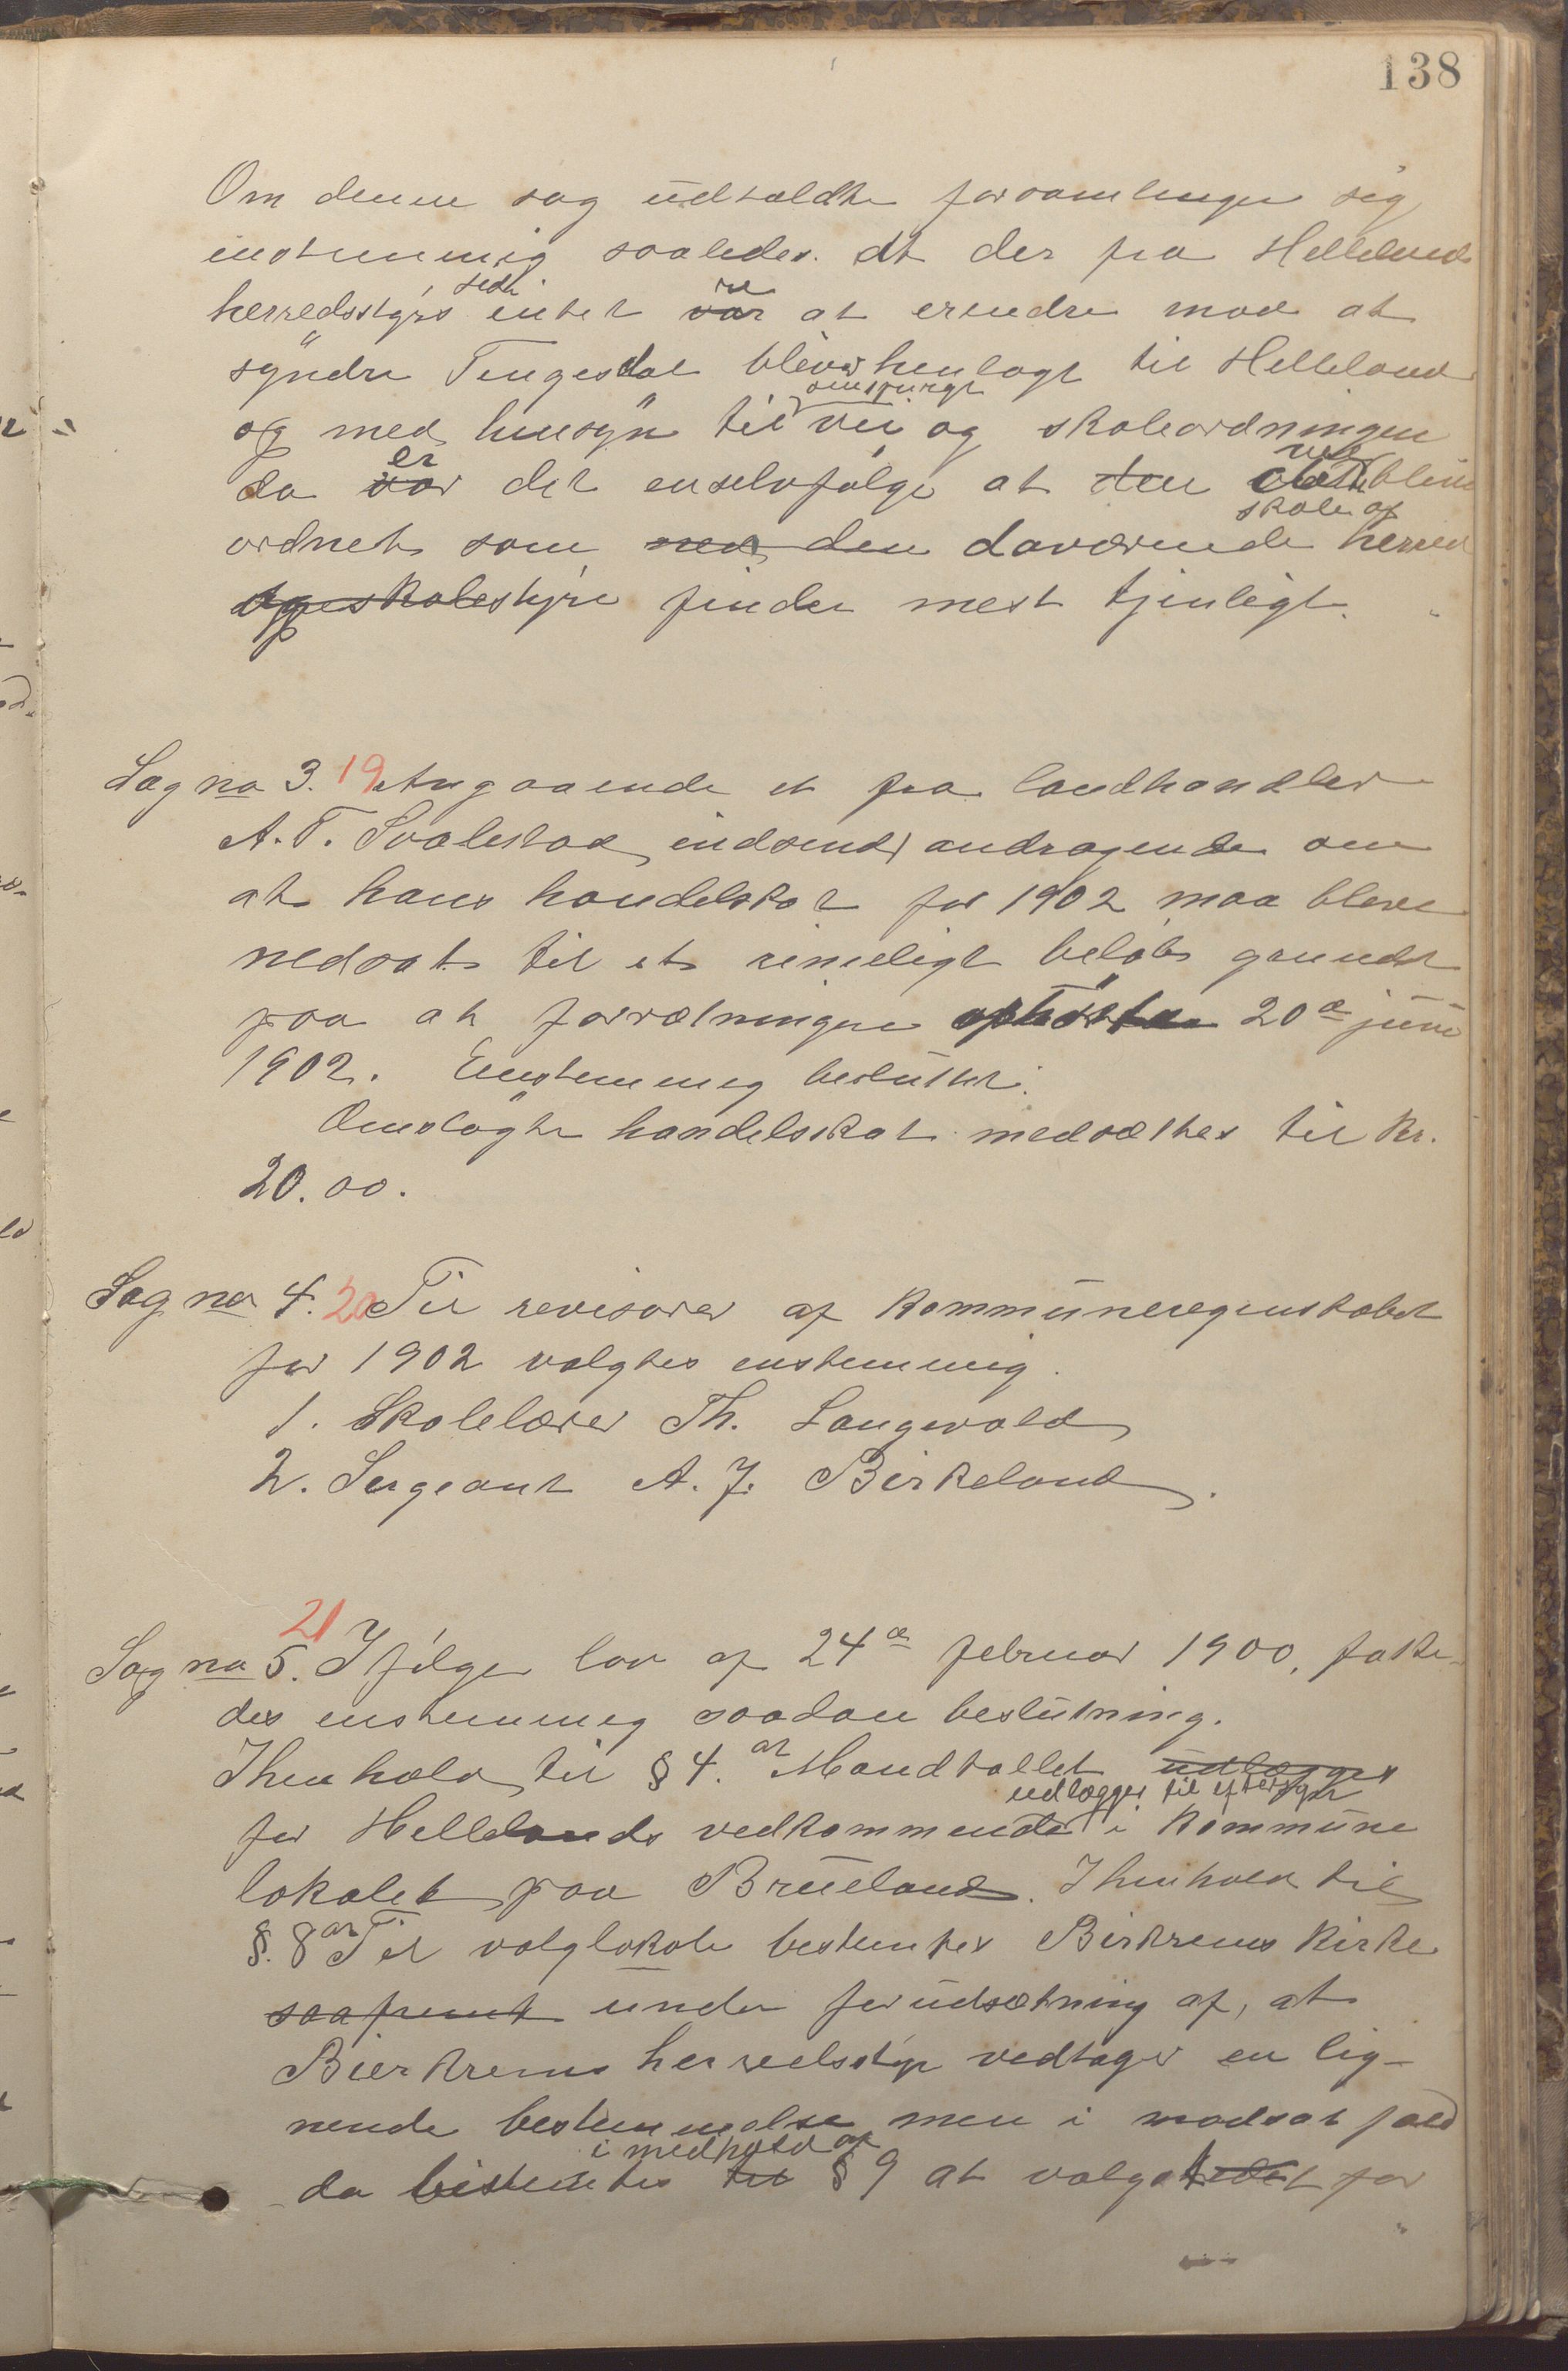 138
Om denne sag udtaldte forsamlingen sig
enstemmig saaledes. At der fra Helleland
herredsstyrs side intet var at erindre mod at
syndre Tengesdal blever henlagt til Helleland
og med hensyn til omspurgt vei og skoleordningen
da var er det enselvfølge at den vil blive
ordnet som med den daværende skole og herred
ogsskolestyre finder mest tjenligt.
Sag no 3. 19 Angaaende et fra landhandler
A. T. Svalestad indsendt andragende om
at hans handelskat for 1902 maa blive
nedsat til et rimeligt beløb grundet
paa at forretningen ophørte 20de juni
1902. Enstemmig besluttet:
Omsøgte handelsskat nedsættes til kr.
20.00.
Sag no 4. 20 Til revisorer af kommuneregnskabet
for 1902 valgtes enstemmig.
1. Skolelærer Th. Langvald
2. Sergeant A. J. Birkeland.
21
Sag no 5. Ifølge lov af 24de februar 1900, fatte-
des enstemmig saadan beslutning.
I henhold til § 4. at Mandtallet udlægges
for Hellelands vedkommende udlægges til eftersyn i kommune
lokalet paa Brueland. I henhold til
§. 8 at Til valglokale bestemtes Birkrems kirke
saafremt under forudsætning af, at
Bierkrems herredsstyr vedtager en lig-
nende bestemmelse men i modsat fald
da bestemtes til i medhold af § 9 at valgstedet for